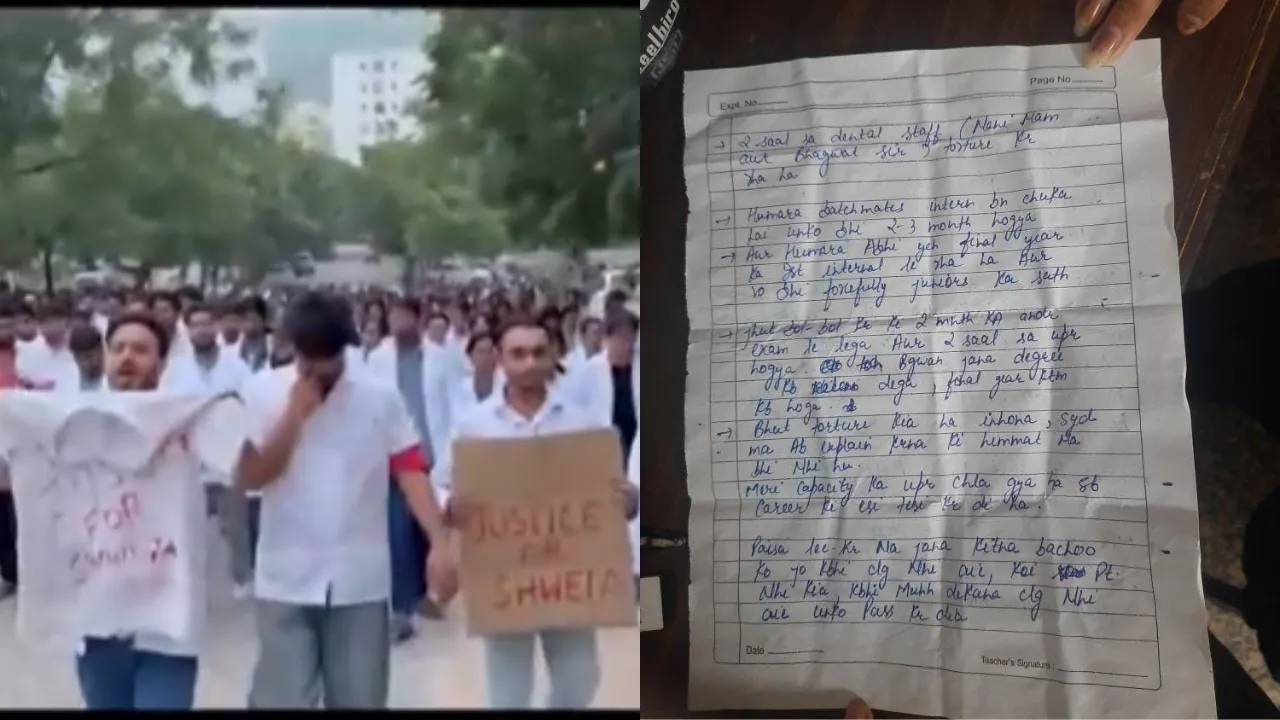 FOR
JUSTICE
FOR
SHWETA
eelbird
Expt. No.
Page No.
→ 2 saal sa dental staff (Nani Mam
aur Bhagwat Sir) torture kr
rha ha
→ Humara batchmates intern bn chuka
hai unko bhi 2-3 month hogya
→ Aur Humara Abhi yeh final year
ka 1st internal le rha ha Aur
vo bhi forcefully juniors ka sath
→ jhut bol-bol kr ke 2 month ka andr
exam le lega Aur 2 saal sa upr
hogya. Bgwan jana degree
kb dega, final year ktm
kb hoga.
→ Bhut torture kia ha inhona, syd
ma Ab explain krna ki himmat na
bhi Nhi hu.
Meri capacity ka upr chla gya ha sb
Career ki esi tesi kr di ha.
Paisa lee-kr Na jana kitna bachoo
ko jo kbhi clg Nhi air, koi Pt.
Nhi kia, kbhi Muhh dikana clg Nhi
air unko Pass kr dia
Date
Teacher's Signature :